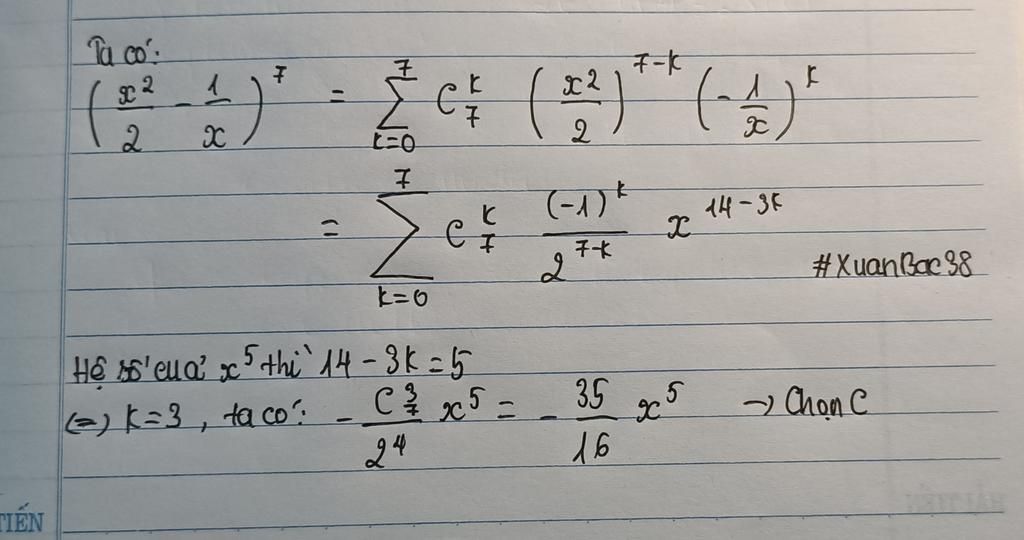 Ta có:
(x²/2 - 1/x)⁷ = ∑_{k=0}^{7} C_7^k (x²/2)^{7-k} (-1/x)^k
= ∑_{k=0}^{7} C_7^k (-1)^k/2^{7-k} x^{14-3k}
#XuanBac38
Hệ số của x⁵ thì 14 - 3k = 5
(=) k = 3, ta có: - C_7^3/2⁴ x⁵ = - 35/16 x⁵ → Chọn C
TIẾN
HẢI TIẾN